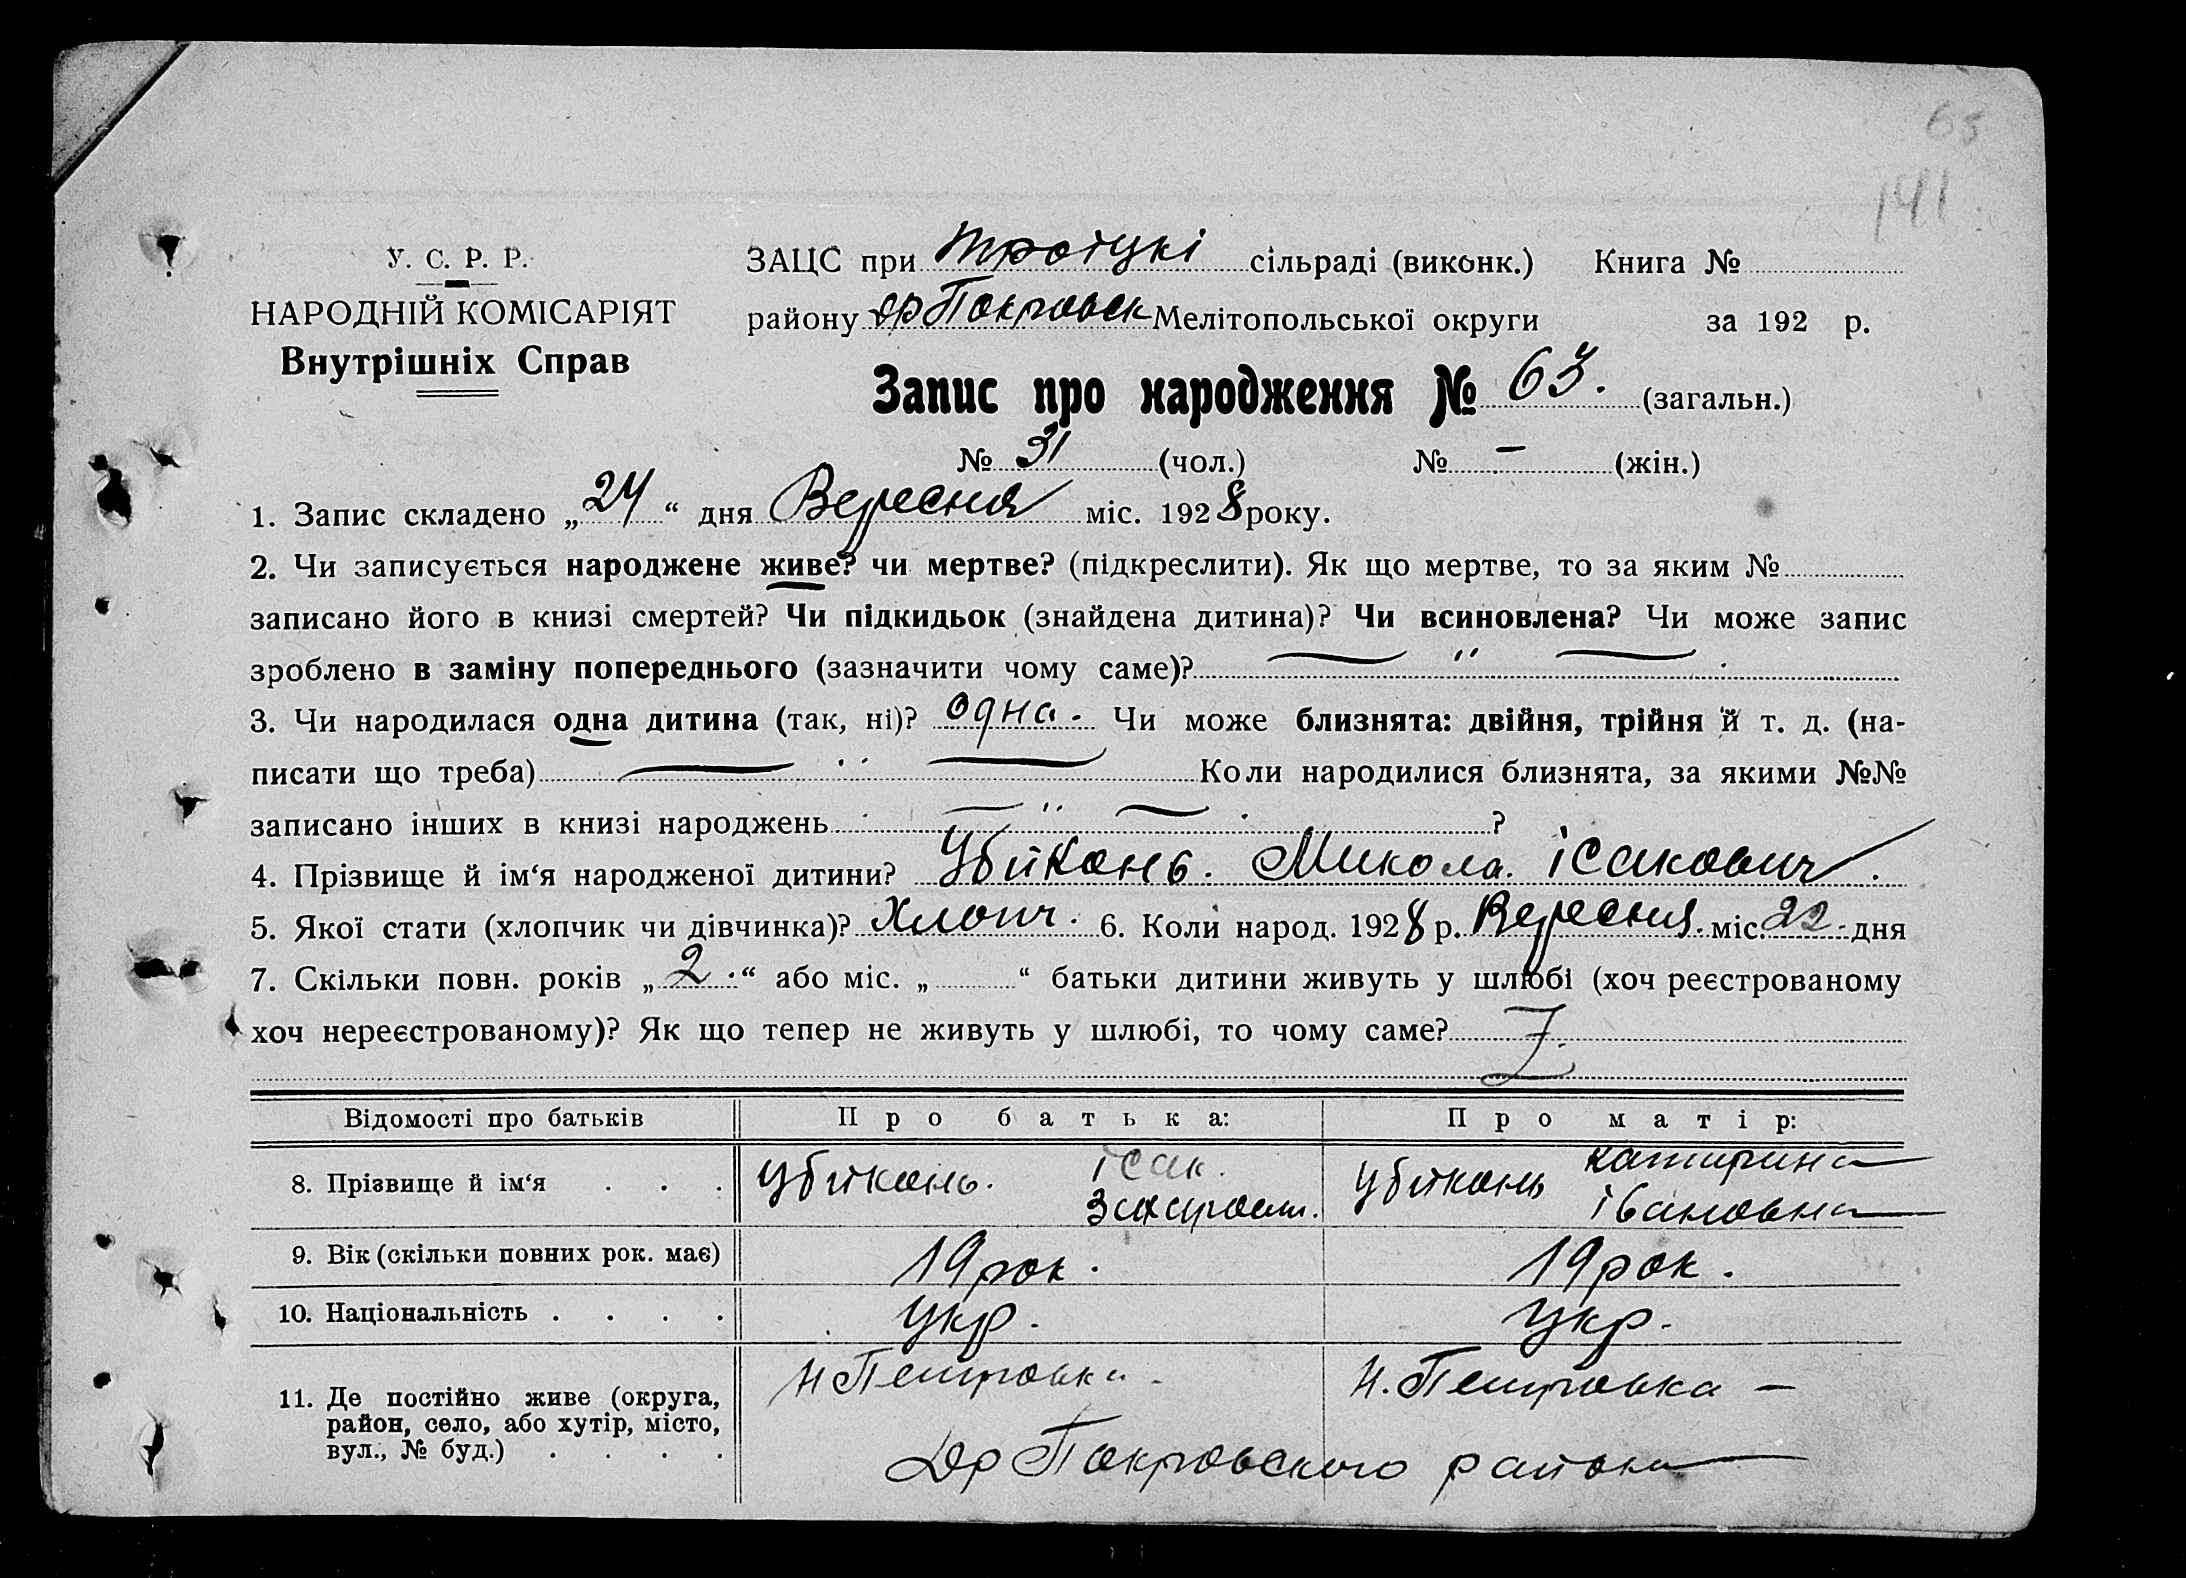 63
141
У. С. Р. Р.
НАРОДНІЙ КОМІСАРІЯТ
Внутрішніх Справ
ЗАЦС при Троіцкі сільраді (виконк.) Книга №
району др Покровск Мелітопольської округи за 192 р.
Запис про народження № 63. (загальн.)
№ 31 (чол.) № – (жін.)
1. Запис складено „24“ дня Вересня міс. 1928 року.
2. Чи записується народжене живе? чи мертве? (підкреслити). Як що мертве, то за яким №
записано його в книзі смертей? Чи підкидьок (знайдена дитина)? Чи всиновлена? Чи може запис
зроблено в заміну попереднього (зазначити чому саме)? — " —
3. Чи народилася одна дитина (так, ні)? одна. Чи може близнята: двійня, трійня й т. д. (на-
писати що треба) — " — Коли народилися близнята, за якими №№
записано інших в книзі народжень — " — ?
4. Прізвище й ім‘я народженої дитини? Убийконь. Микола. ісакович.
5. Якої стати (хлопчик чи дівчинка)? Хлопч. 6. Коли народ. 1928 р. Вересня. міс. 22. дня
7. Скільки повн. років „2.“ або міс. „ “ батьки дитини живуть у шлюбі (хоч реєстрованому
хоч нереєстрованому)? Як що тепер не живуть у шлюбі, то чому саме?
Відомості про батьків Про батька: Про матір:
8. Прізвище й ім‘я . . . Убийконь. ісак. Захаров. Убийконь Катирина івановна
9. Вік (скільки повних рок. має) 19 рок. 19 рок.
10. Національність . . . . Укр. Укр.
11. Де постійно живе (округа, Н Петровка. Н. Петровка —
район, село, або хутір, місто,
вул., № буд.) . . . . Др Покровского района